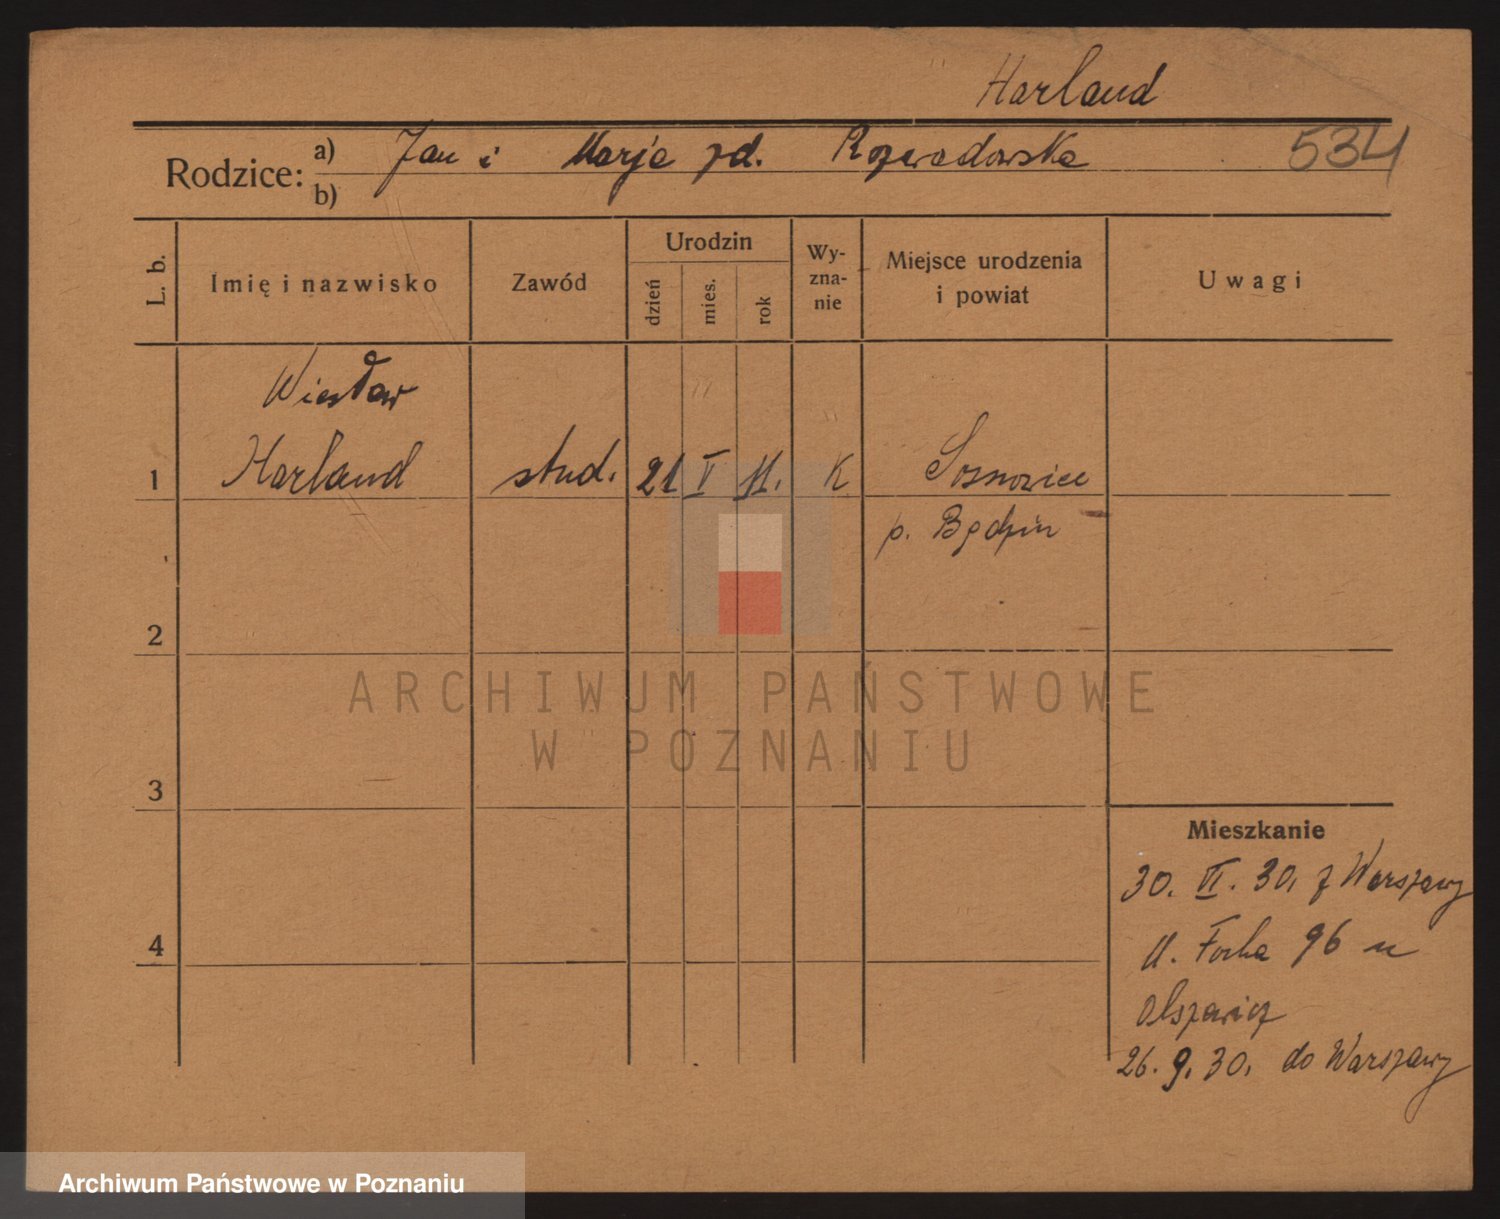 Harland
534
Rodzice: a) Jan i Marja zd. Rozwadowska
b)
L. b. Imię i nazwisko Zawód Urodzin dzień mies. rok Wy-zna-nie Miejsce urodzenia i powiat Uwagi
Wiesław
1 Harland stud. 21 V 11. K Sosnowice
p. Będzin
2
ARCHIWUM PAŃSTWOWE
W POZNANIU
3
Mieszkanie
30. VI. 30. z Warszawy
4 ul. Focha 96 u
26. 9. 30. do Warszawy
Archiwum Państwowe w Poznaniu